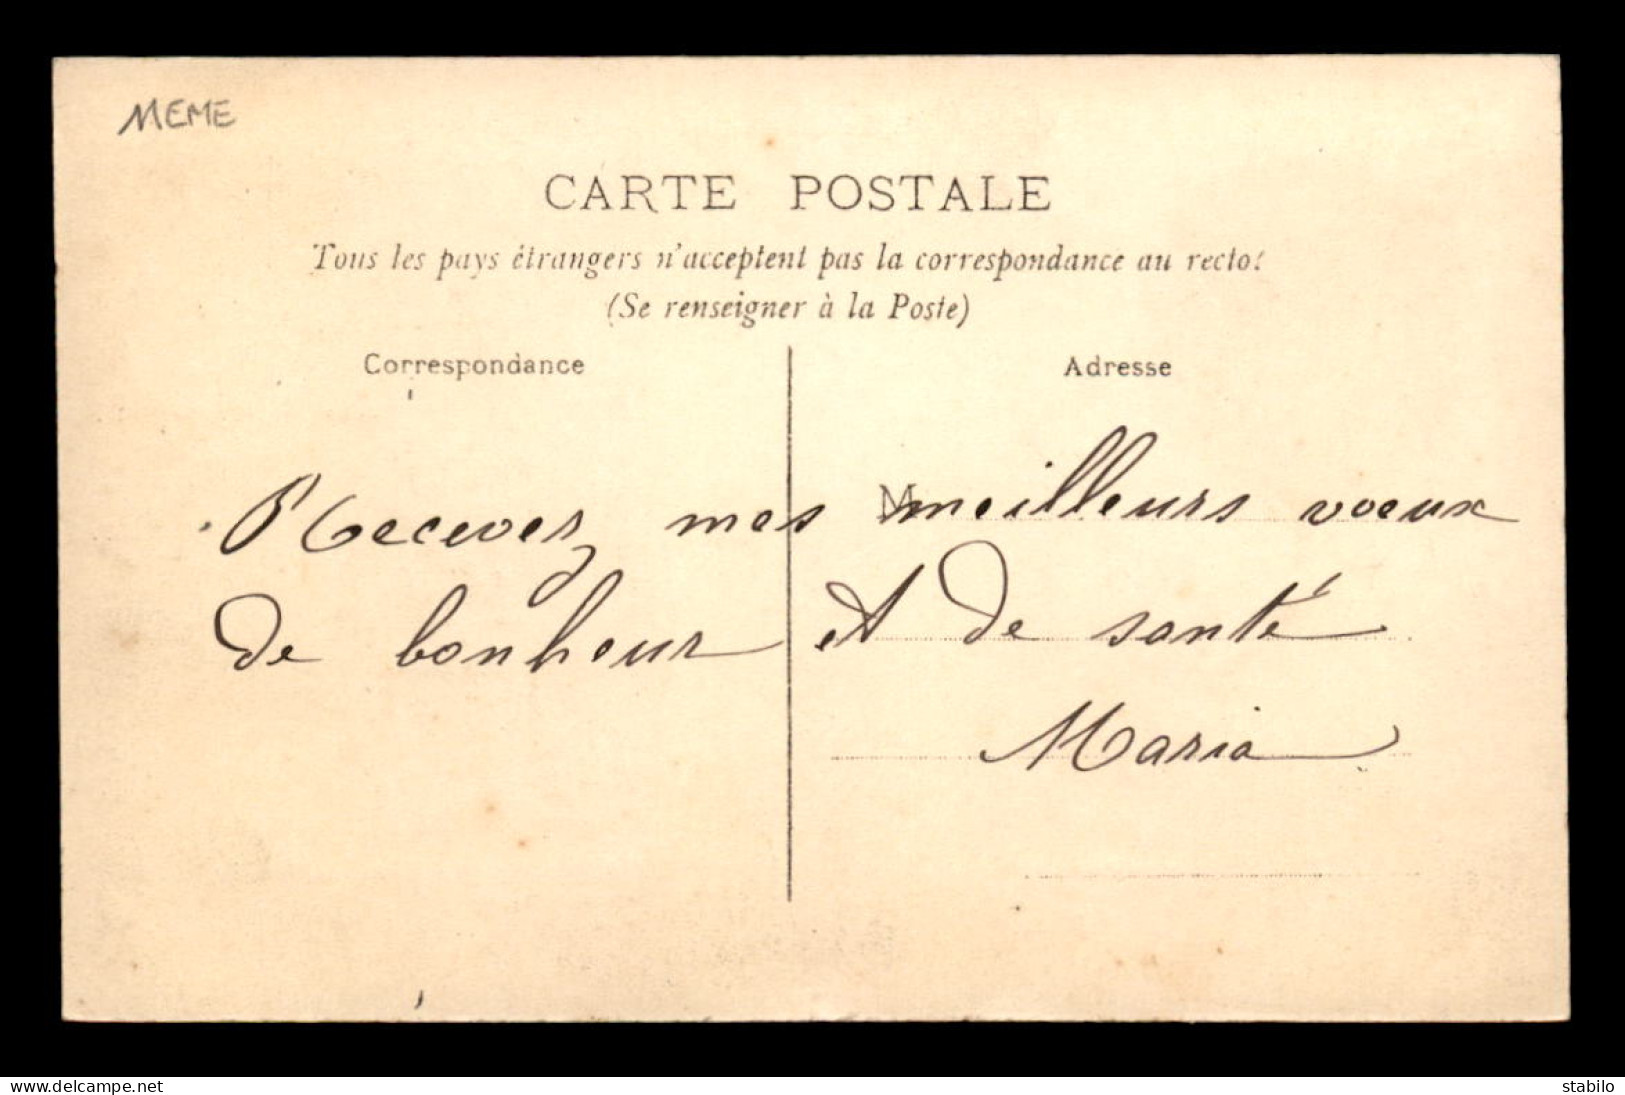 MEME
CARTE POSTALE
Tous les pays étrangers n'acceptent pas la correspondance au recto.
(Se renseigner à la Poste)
Correspondance
Adresse
M
Recevez mes meilleurs voeux
de bonheur et de santé
Maria
www.delcampe.net
stabilo